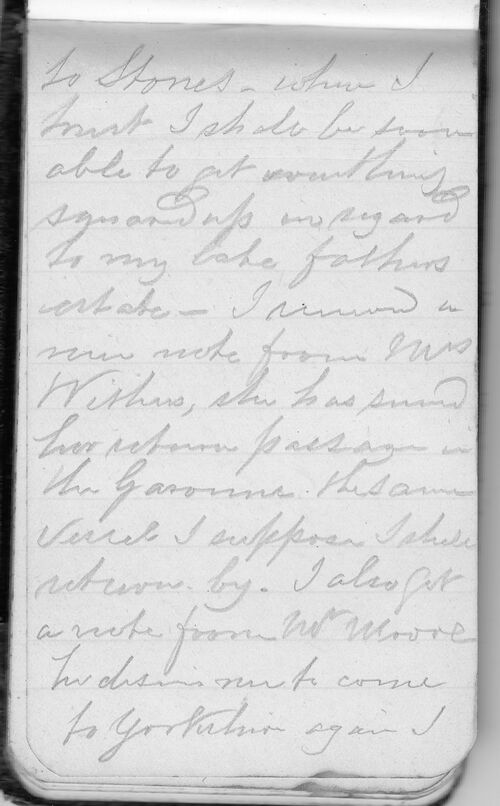 to Stones - when I
trust I shall be soon
able to get everything
squared up in regard
to my late fathers
estate - I received a
nice note from Mrs
Withers, she has secured
her return passage in
the Garonne. the same
vessel I suppose I shall
return by. I also got
a note from Mr Moore
he desires me to come
to Yorkshire again I